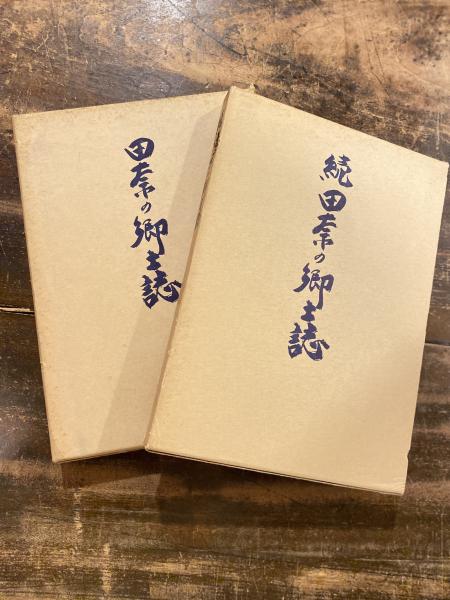 田奈の郷土誌
続田奈の郷土誌